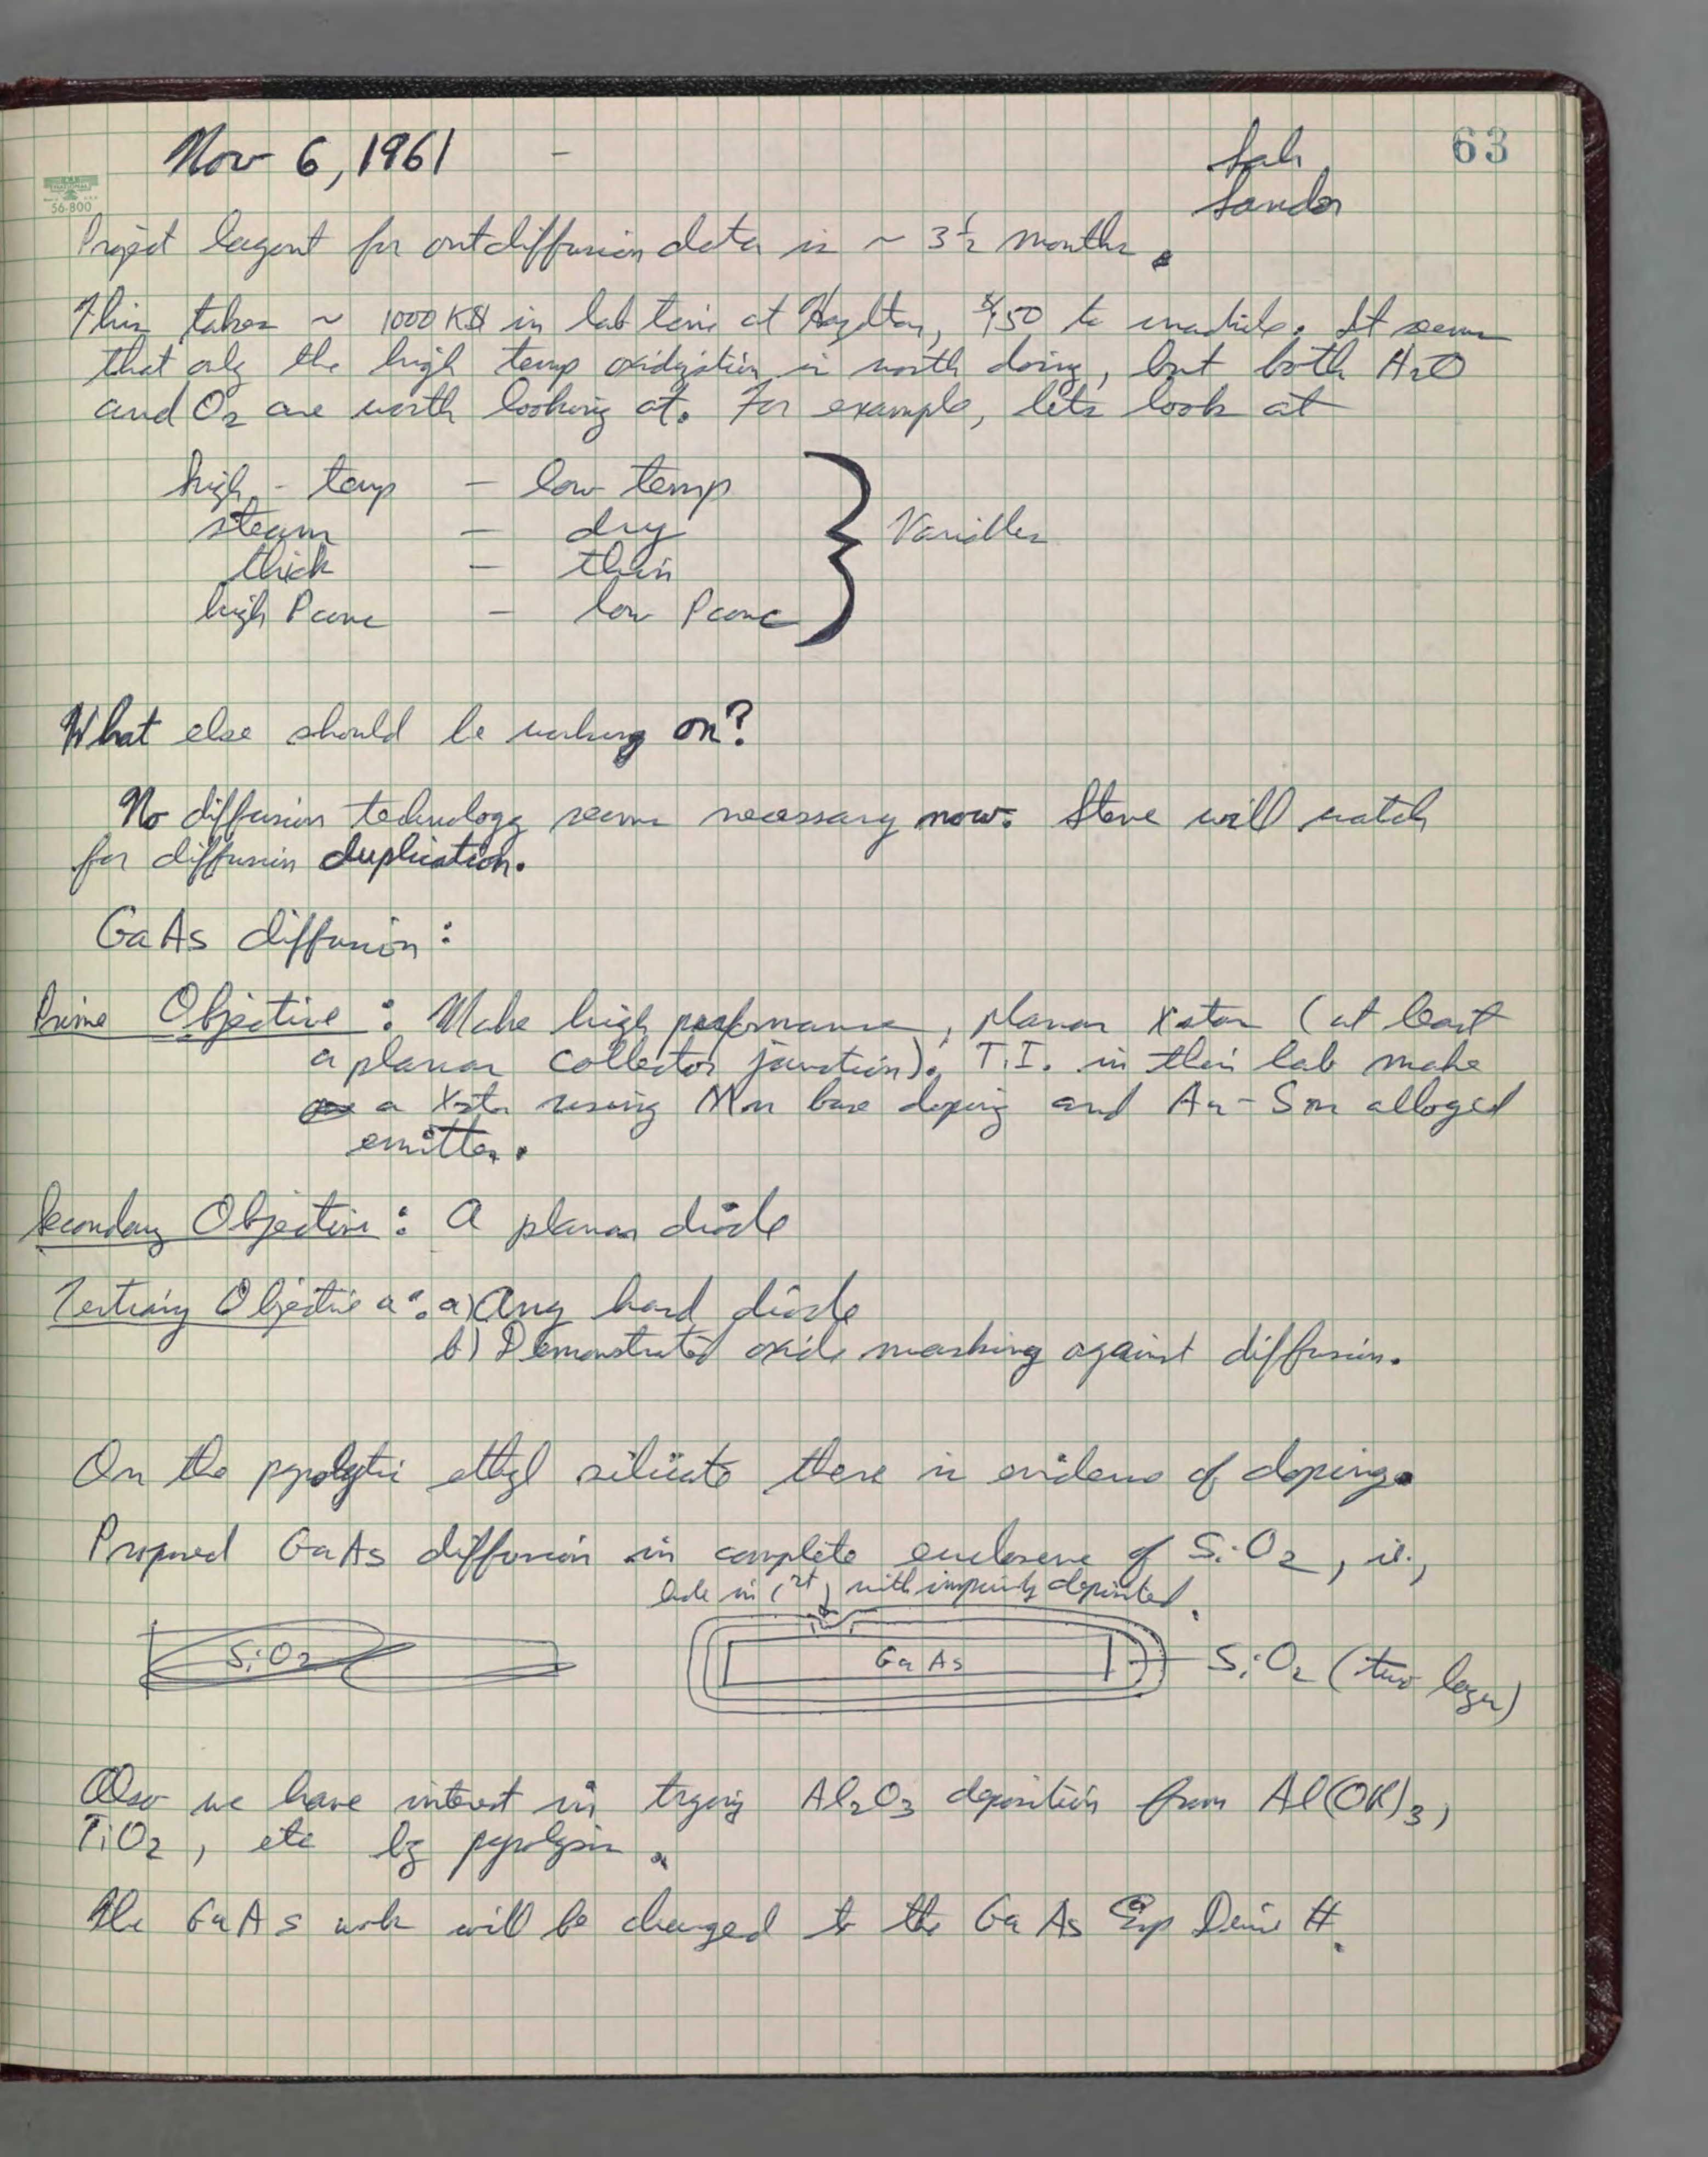 63
Nov 6, 1961 -
Sah
Sandor
56-800
Project layout for outdiffusion data is ~ 3 1/2 months.
This takes ~ 1000 K$ in lab time at, $150 to. It seems
that only the high temp oxidization is worth doing, but both H2O
and O2 are worth looking at. For example, lets look at
high - temp - low temp
steam - dry
thick - thin
high P conc - low P conc
Variables
What else should be working on?
No diffusion technology seems necessary now. Steve will watch
for diffusion duplication.
GaAs diffusion:
Prime Objective: Make high performance, planar Xstor (at least
a planar collector junction). T.I. in this lab make
a Xstor using Mn base doping and Au-Sn alloyed
emitter.
Secondary Objective: A planar diode
Tertiary Objective a: a) Any hard diode
b) Demonstrated oxide masking against diffusion.
On the pyrolytic ethyl silicate there is evidence of doping.
Proposed GaAs diffusion in complete enclosure of SiO2, ie.,
hole in (1st) with impurity deposited.
SiO2
GaAs
SiO2 (two layer)
Also we have interest in trying Al2O3 deposition from Al(OR)3,
TiO2, etc by pyrolysis.
The GaAs work will be changed to the GaAs Exp Device #.